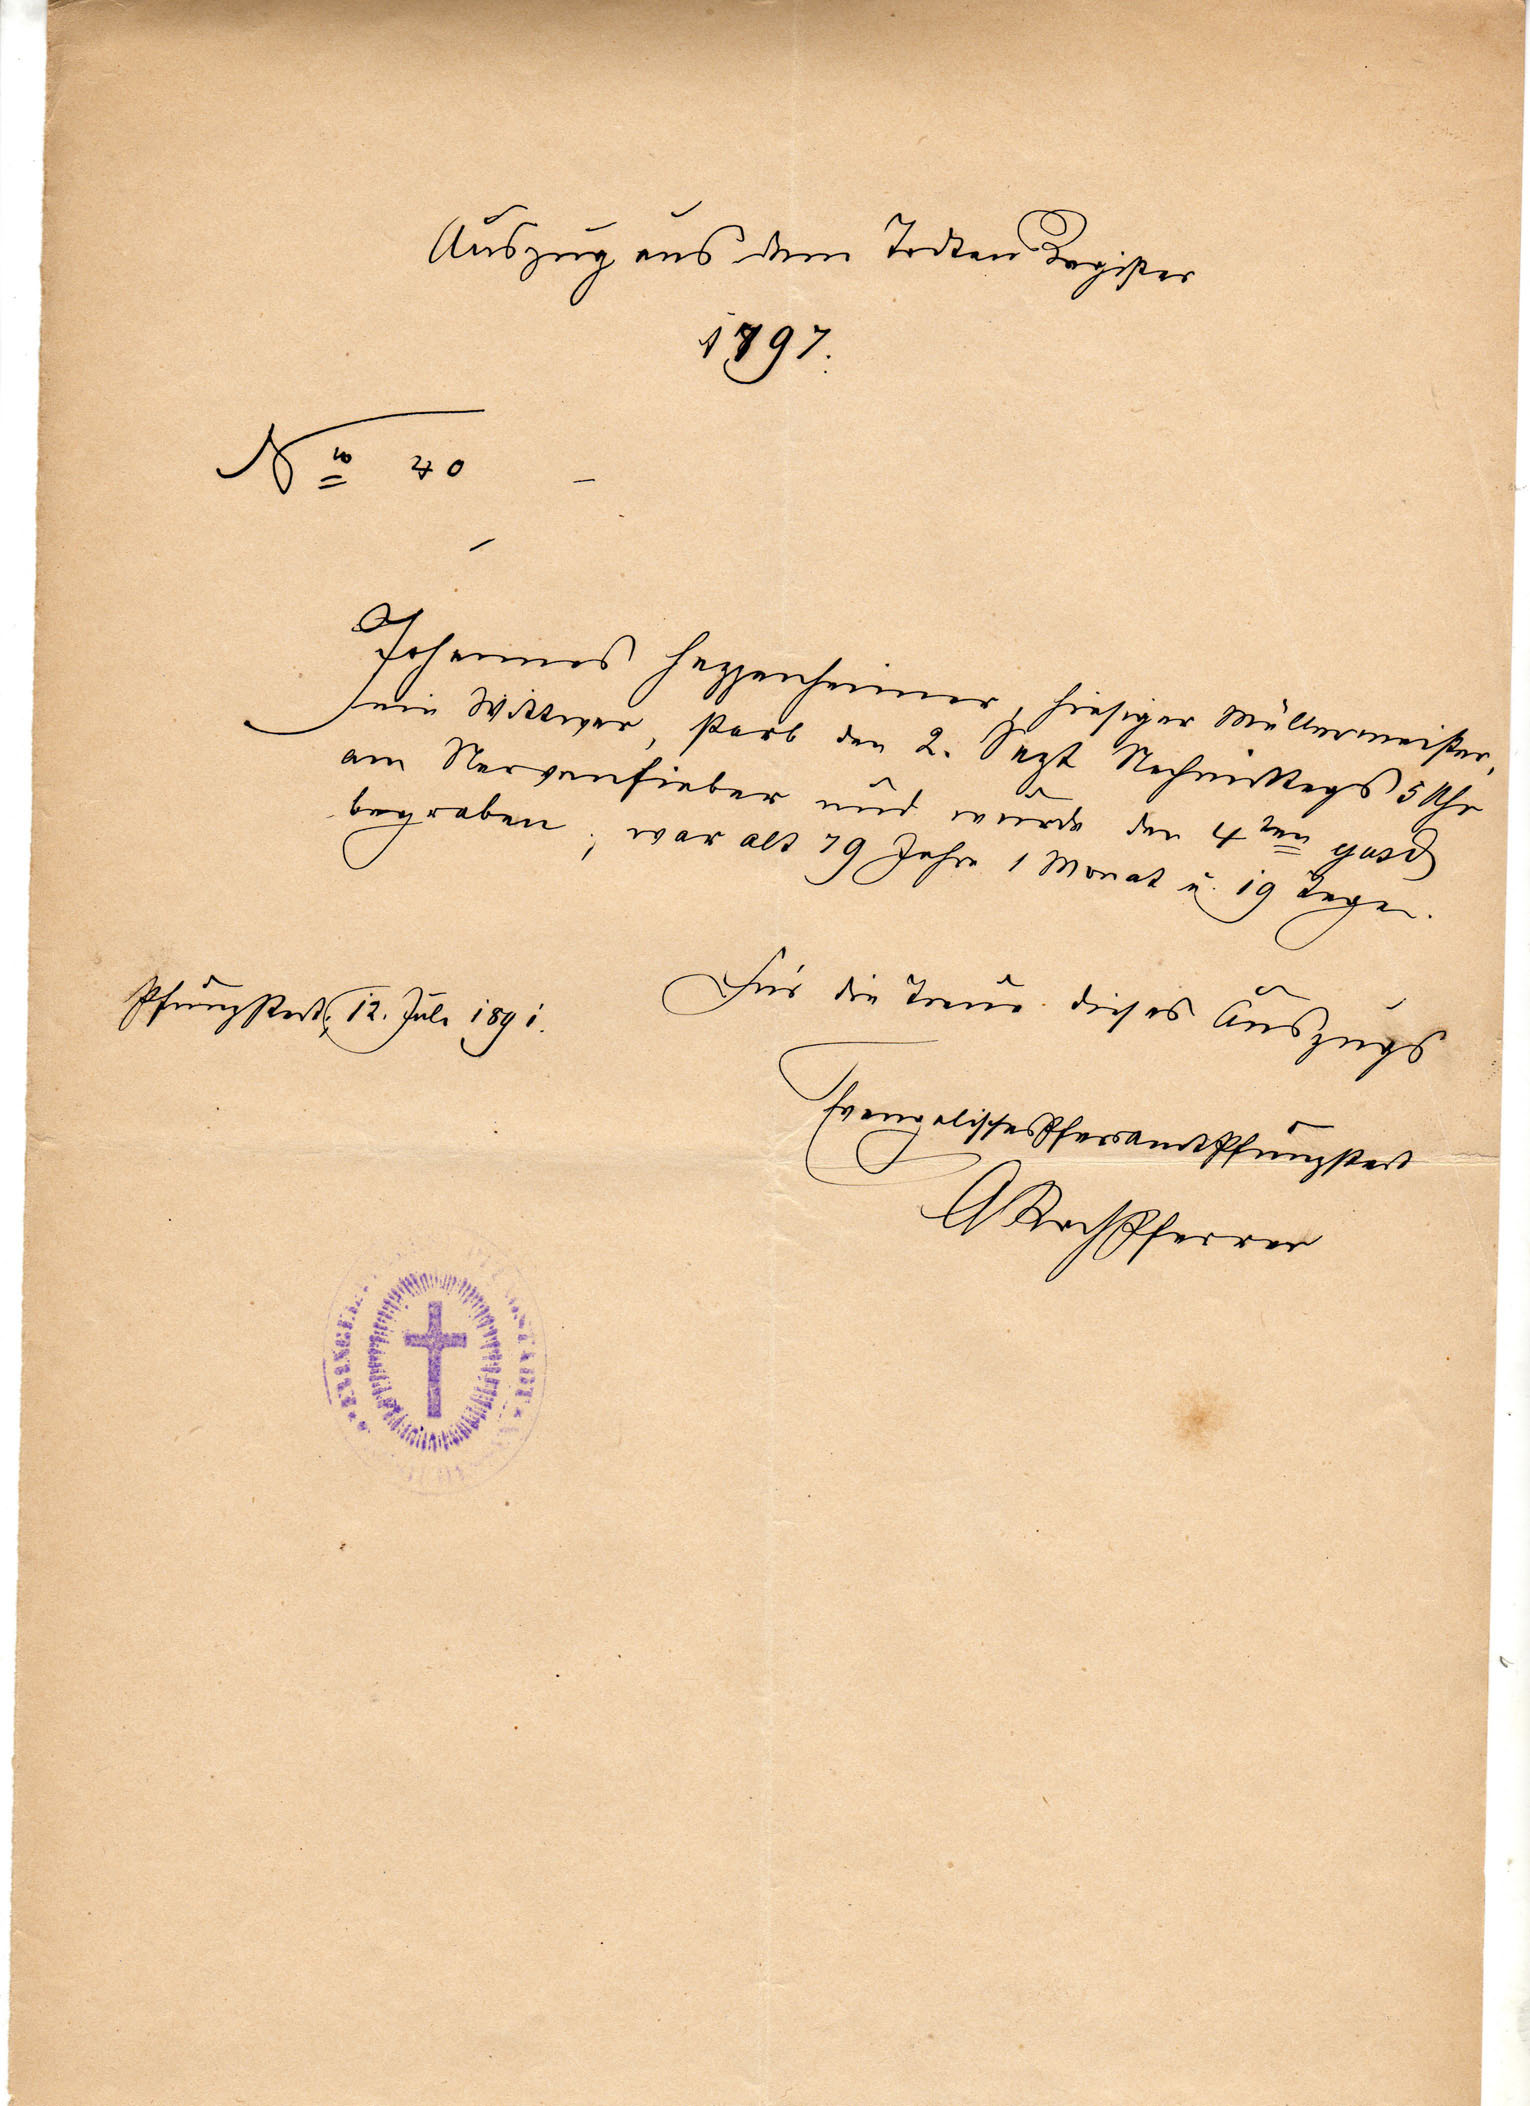 Auszug aus dem Todten Register
1797.
No 40
Johannes Heppenheimer, hiesiger Müllermeister,
ein Wittwer, starb den 2. Sept Nachmittags 5 Uhr
am Nervenfieber und wurde den 4ten
begraben; war alt 76 Jahre 1 Monat u. 19 Tage.
Pfungstadt, 12. Juli 1891.
Für die Treue dieses Auszugs
Evangelisches Pfarramt Pfungstadt
Koch Pfarrer